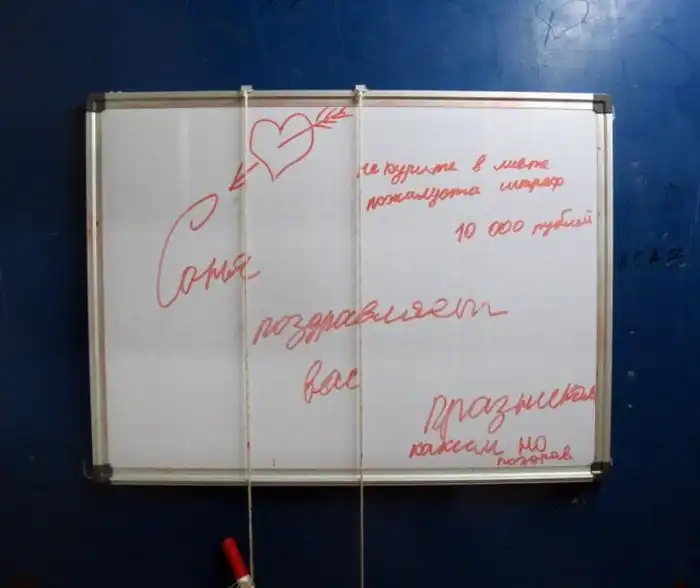 не курите в лифте
пожалуйста штраф
10 000 рублей
Соня
поздравляем
вас
празником
каким но
поздрав